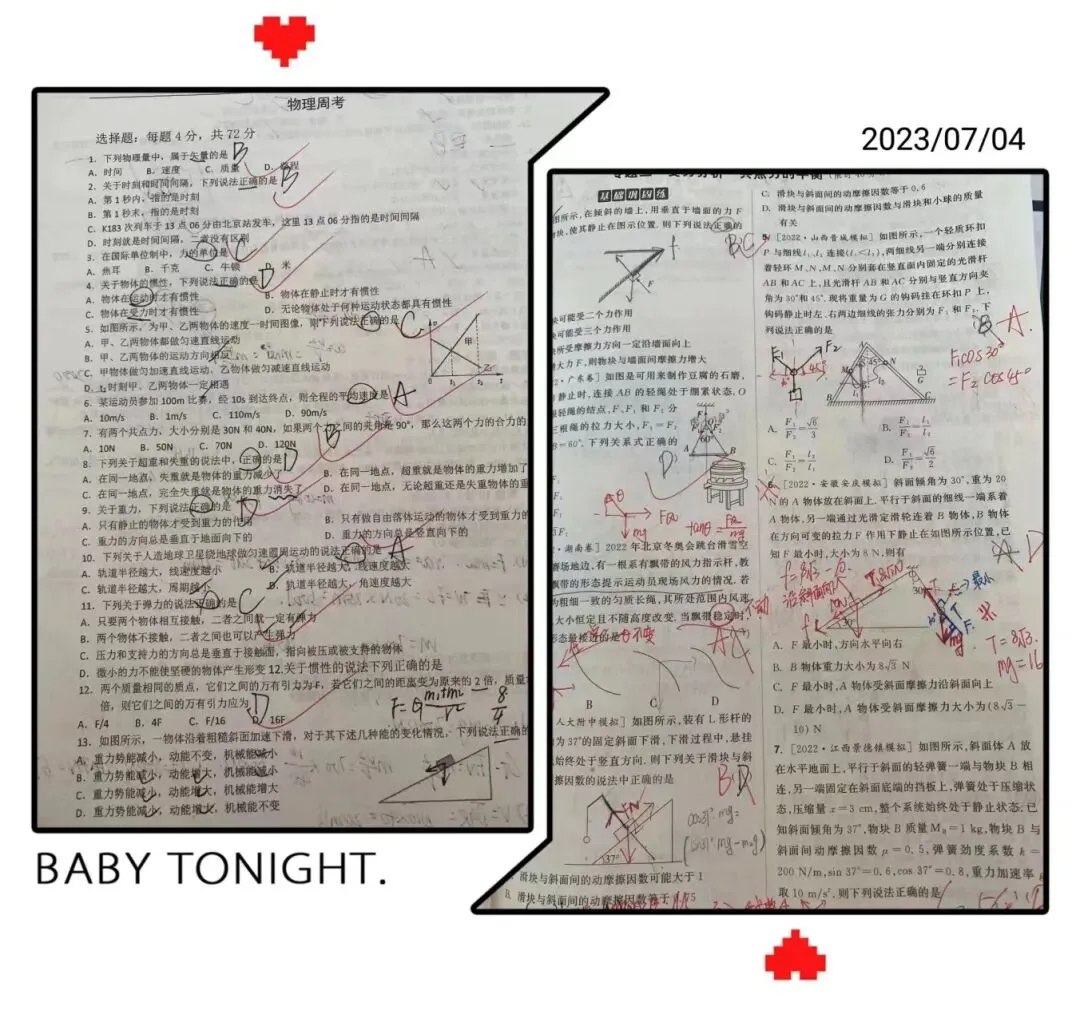 2023/07/04
BABY TONIGHT.
物理周考
选择题：每题 4 分，共 72 分
1. 下列物理量中，属于矢量的是 B
A. 时间 B. 速度 C. 质量 D. 路程
2. 关于时刻和时间间隔，下列说法正确的是 B
A. 第 1 秒内，指的是时刻
B. 第 1 秒末，指的是时刻
C. K183 次列车于 13 点 06 分由北京站发车，这里 13 点 06 分指的是时间间隔
D. 时刻就是时间间隔，二者没有区别
3. 在国际单位制中，力的单位是 C
A. 焦耳 B. 千克 C. 牛顿 D. 米
4. 关于物体的惯性，下列说法正确的是 D
A. 物体在运动时才有惯性 B. 物体在静止时才有惯性
C. 物体在受力时才有惯性 D. 无论物体处于何种运动状态都具有惯性
5. 如图所示，为甲、乙两物体的速度一时间图像，则下列说法正确的是 C
A. 甲、乙两物体都做匀速直线运动
B. 甲、乙两物体的运动方向相反
C. 甲物体做匀加速直线运动、乙物体做匀减速直线运动
D. t₂时刻甲、乙两物体一定相遇
甲
6. 某运动员参加 100m 比赛，经 10s 到达终点，则全程的平均速度是 A
A. 10m/s B. 1m/s C. 110m/s D. 90m/s
7. 有两个共点力，大小分别是 30N 和 40N，如果两个力之间的夹角是 90°，那么这两个力的合力的
A. 10N B. 50N C. 70N D. 120N
B
8. 下列关于超重和失重的说法中，正确的是 D
A. 在同一地点，失重就是物体的重力减少了 B. 在同一地点，超重就是物体的重力增加了
C. 在同一地点，完全失重就是物体的重力消失了 D. 在同一地点，无论超重还是失重物体的重
9. 关于重力，下列说法正确的是 D
A. 只有静止的物体才受到重力的作用 B. 只有做自由落体运动的物体才受到重力的
C. 重力的方向总是垂直于地面向下的 D. 重力的方向总是竖直向下的
10. 下列关于人造地球卫星绕地球做匀速圆周运动的说法正确的是 A
A. 轨道半径越大，线速度越小 B. 轨道半径越大，线速度越大
C. 轨道半径越大，周期越小 D. 轨道半径越大，角速度越大
11. 下列关于弹力的说法正确的是 C
A. 只要两个物体相互接触，二者之间就一定有弹力
B. 两个物体不接触，二者之间也可以产生弹力
C. 压力和支持力的方向总是垂直于接触面，指向被压或被支持的物体
D. 微小的力不能使坚硬的物体产生形变 12.关于惯性的说法下列正确的是
12. 两个质量相同的质点，它们之间的万有引力为 F，若它们之间的距离变为原来的 2 倍，质量
倍，则它们之间的万有引力应为 D
A. F/4 B. 4F C. F/16 D. 16F
13. 如图所示，一物体沿着粗糙斜面加速下滑，对于其下述几种能的变化情况，下列说法正确的
A. 重力势能减小，动能不变，机械能减小
B. 重力势能减小，动能增大，机械能减小
C. 重力势能减小，动能增大，机械能增大
D. 重力势能减小，动能增大，机械能不变
基础强训练
图所示，在倾斜的墙上，用垂直于墙面的力 F
块，使其静止在图示位置. 则下列说法正确的
BC
块可能受二个力作用
块可能受三个力作用
块所受摩擦力方向一定沿墙面向上
大力 F，则物块与墙面间摩擦力增大
2·广东卷] 如图是可用来制作豆腐的石磨.
静止时，连接 AB 的轻绳处于绷紧状态. O
根轻绳的结点，F、F₁ 和 F₂ 分
三根绳的拉力大小，F₁=F₂
B=60°. 下列关系式正确的
D
60°
A B
tanθ=F风/mg
·湖南卷] 2022 年北京冬奥会跳台滑雪空
赛场地边，有一根系有飘带的风力指示杆，教
飘带的形态提示运动员现场风力的情况. 若
为粗细一致的匀质长绳，其所处范围内风速
大小恒定且不随高度改变. 当飘带稳定时，
形态最接近的是
A
B C D
人大附中模拟] 如图所示，装有 L 形杆的
为 37°的固定斜面下滑，下滑过程中，悬挂
始终处于竖直方向. 则下列关于滑块与斜
擦因数的说法中正确的是
BD
37°
滑块与斜面间的动摩擦因数可能大于 1
B. 滑块与斜面间的动摩擦因数等于 0.75
C. 滑块与斜面间的动摩擦因数等于 0.6
D. 滑块与斜面间的动摩擦因数与滑块和小球的质量
有关
5. [2022·山西晋城模拟] 如图所示，一个轻质环扣
P 与细线 l₁、l₂ 连接(l₁<l₂)，两细线另一端分别连接
着轻环 M、N，M、N 分别套在竖直面内固定的光滑杆
AB 和 AC 上，且光滑杆 AB 和 AC 分别与竖直方向夹
角为 30°和 45°. 现将重量为 G 的钩码挂在环扣 P 上，
钩码静止时左、右两边细线的张力分别为 F₁ 和 F₂. 下
列说法正确的是
B A.
F₁cos30°
=F₂cos45°
A. F₁/F₂=√6/3 B. F₁/F₂=l₁/l₂
C. F₁/F₂=l₂/l₁ D. F₁/F₂=√6/2
6. [2022·安徽安庆模拟] 斜面倾角为 30°，重为 20
N 的 A 物体放在斜面上. 平行于斜面的细线一端系着
A 物体，另一端通过光滑定滑轮连着 B 物体，B 物体
在方向可变的拉力 F 作用下静止在如图所示位置，已
知 F 最小时，大小为 8 N，则有
A D
f=8√3-10.
沿斜面向下
最小
T=8√3.
mg=16
A. F 最小时，方向水平向右
B. B 物体重力大小为 8√3 N
C. F 最小时，A 物体受斜面摩擦力沿斜面向上
D. F 最小时，A 物体受斜面摩擦力大小为(8√3－
10) N
7. [2022·江西景德镇模拟] 如图所示，斜面体 A 放
在水平地面上，平行于斜面的轻弹簧一端与物块 B 相
连，另一端固定在斜面底端的挡板上，弹簧处于压缩状
态，压缩量 x＝3 cm，整个系统始终处于静止状态. 已
知斜面倾角为 37°，物块 B 质量 M_B＝1 kg，物块 B 与
斜面间动摩擦因数 μ＝0.5，弹簧劲度系数 k＝
200 N/m，sin 37°＝0.6，cos 37°＝0.8，重力加速率 g
取 10 m/s². 则下列说法正确的是